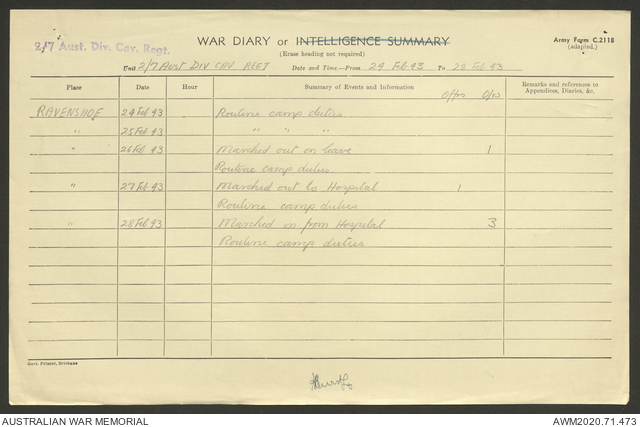 2/7 Aust. Div. Cav. Regt.
WAR DIARY or INTELLIGENCE SUMMARY
Army Form C.2118
(adapted.)
(Erase heading not required)
Unit 2/7 AUST DIV CAV REGT Date and Time—From 24 Feb 43 To 28 Feb 43
Place Date Hour Summary of Events and Information Remarks and references to Appendices, Diaries, &c.
Offrs Ors
RAVENSHOE 24 Feb 43 Routine camp duties
" 25 Feb 43 " " "
" 26 Feb 43 Marched out on leave 1
Routine camp duties
" 27 Feb 43 Marched out to Hospital 1
Routine camp duties
" 28 Feb 43 Marched in from Hospital 3
Routine camp duties
Govt. Printer, Brisbane
AUSTRALIAN WAR MEMORIAL
AWM2020.71.473